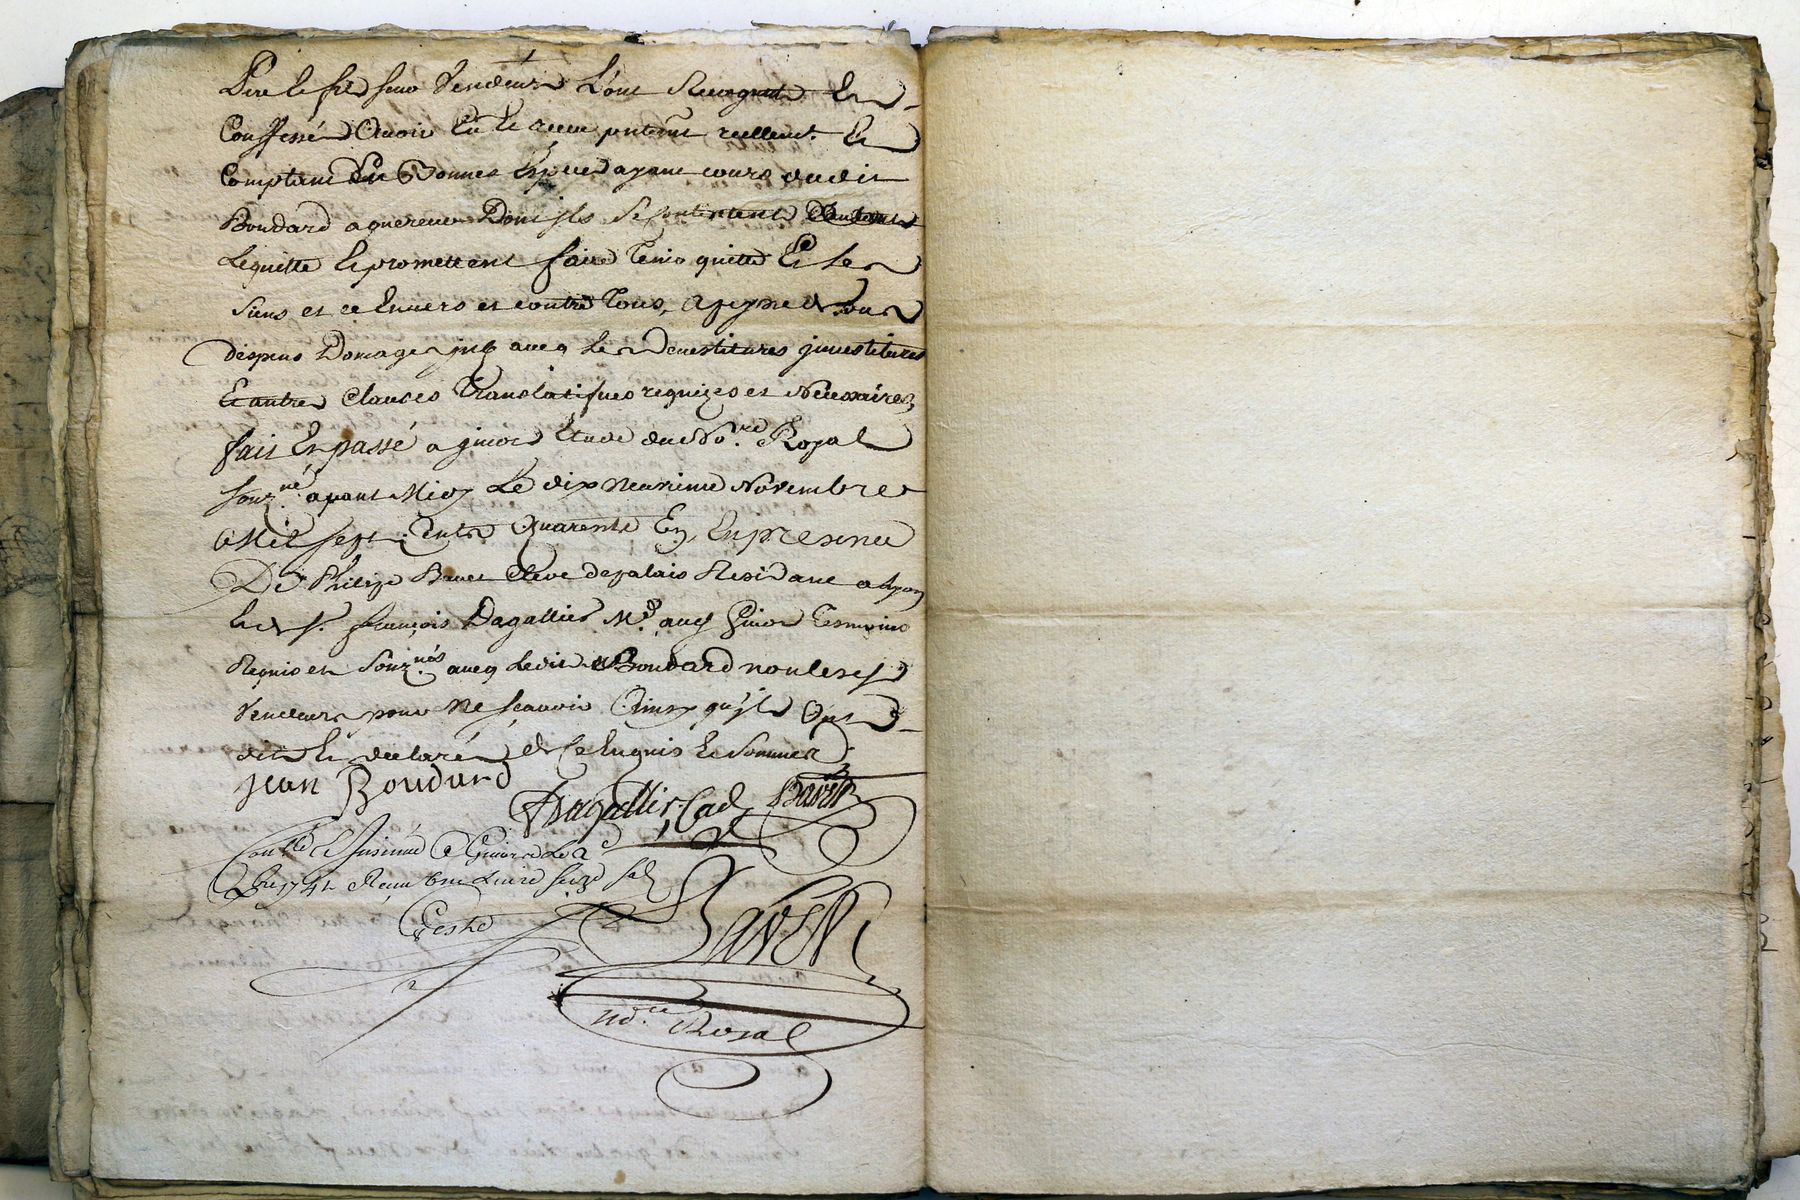 Père le fils seur Vendeurs L'ont Recognus Et
Confessé Avoir Eu et receu reellemt. Et
Comptant En Bonnes Espèces ayant cours dudit
Boudard aquereur Dont jls Se contentent
Lequitte Et promettent faire Tenir quitte Et les
Siens et ce Envers et contre Tous, a peyne de tous
despens Domages jnts avecq les devestitures jnvestitures
Et autres Clauses Translatifues requizes et Nécessaires
fait Et passé a givors Etude du No.re Royal
Souz.né avant Midy Le dix neuvieme Novembre
Mil sept Cents Quarente En presence
De Philipe Clerc de palais Residant a Lyon
Et de Sr. françois Dagallier Md. aud Givors Tesmoins
Requis et Souz.nés avecq Ledit Boudard non lesd
Vendeurs pour Ne scavoir Ainsy qu'jls Ont
dit Et declaré de Ce Enquis Et Sommés
jean Boudard
Dagallier
Con.llé Et Insinué A Givors Le 2e
Xbre 1741 Reçu livre seize
No.re Royal